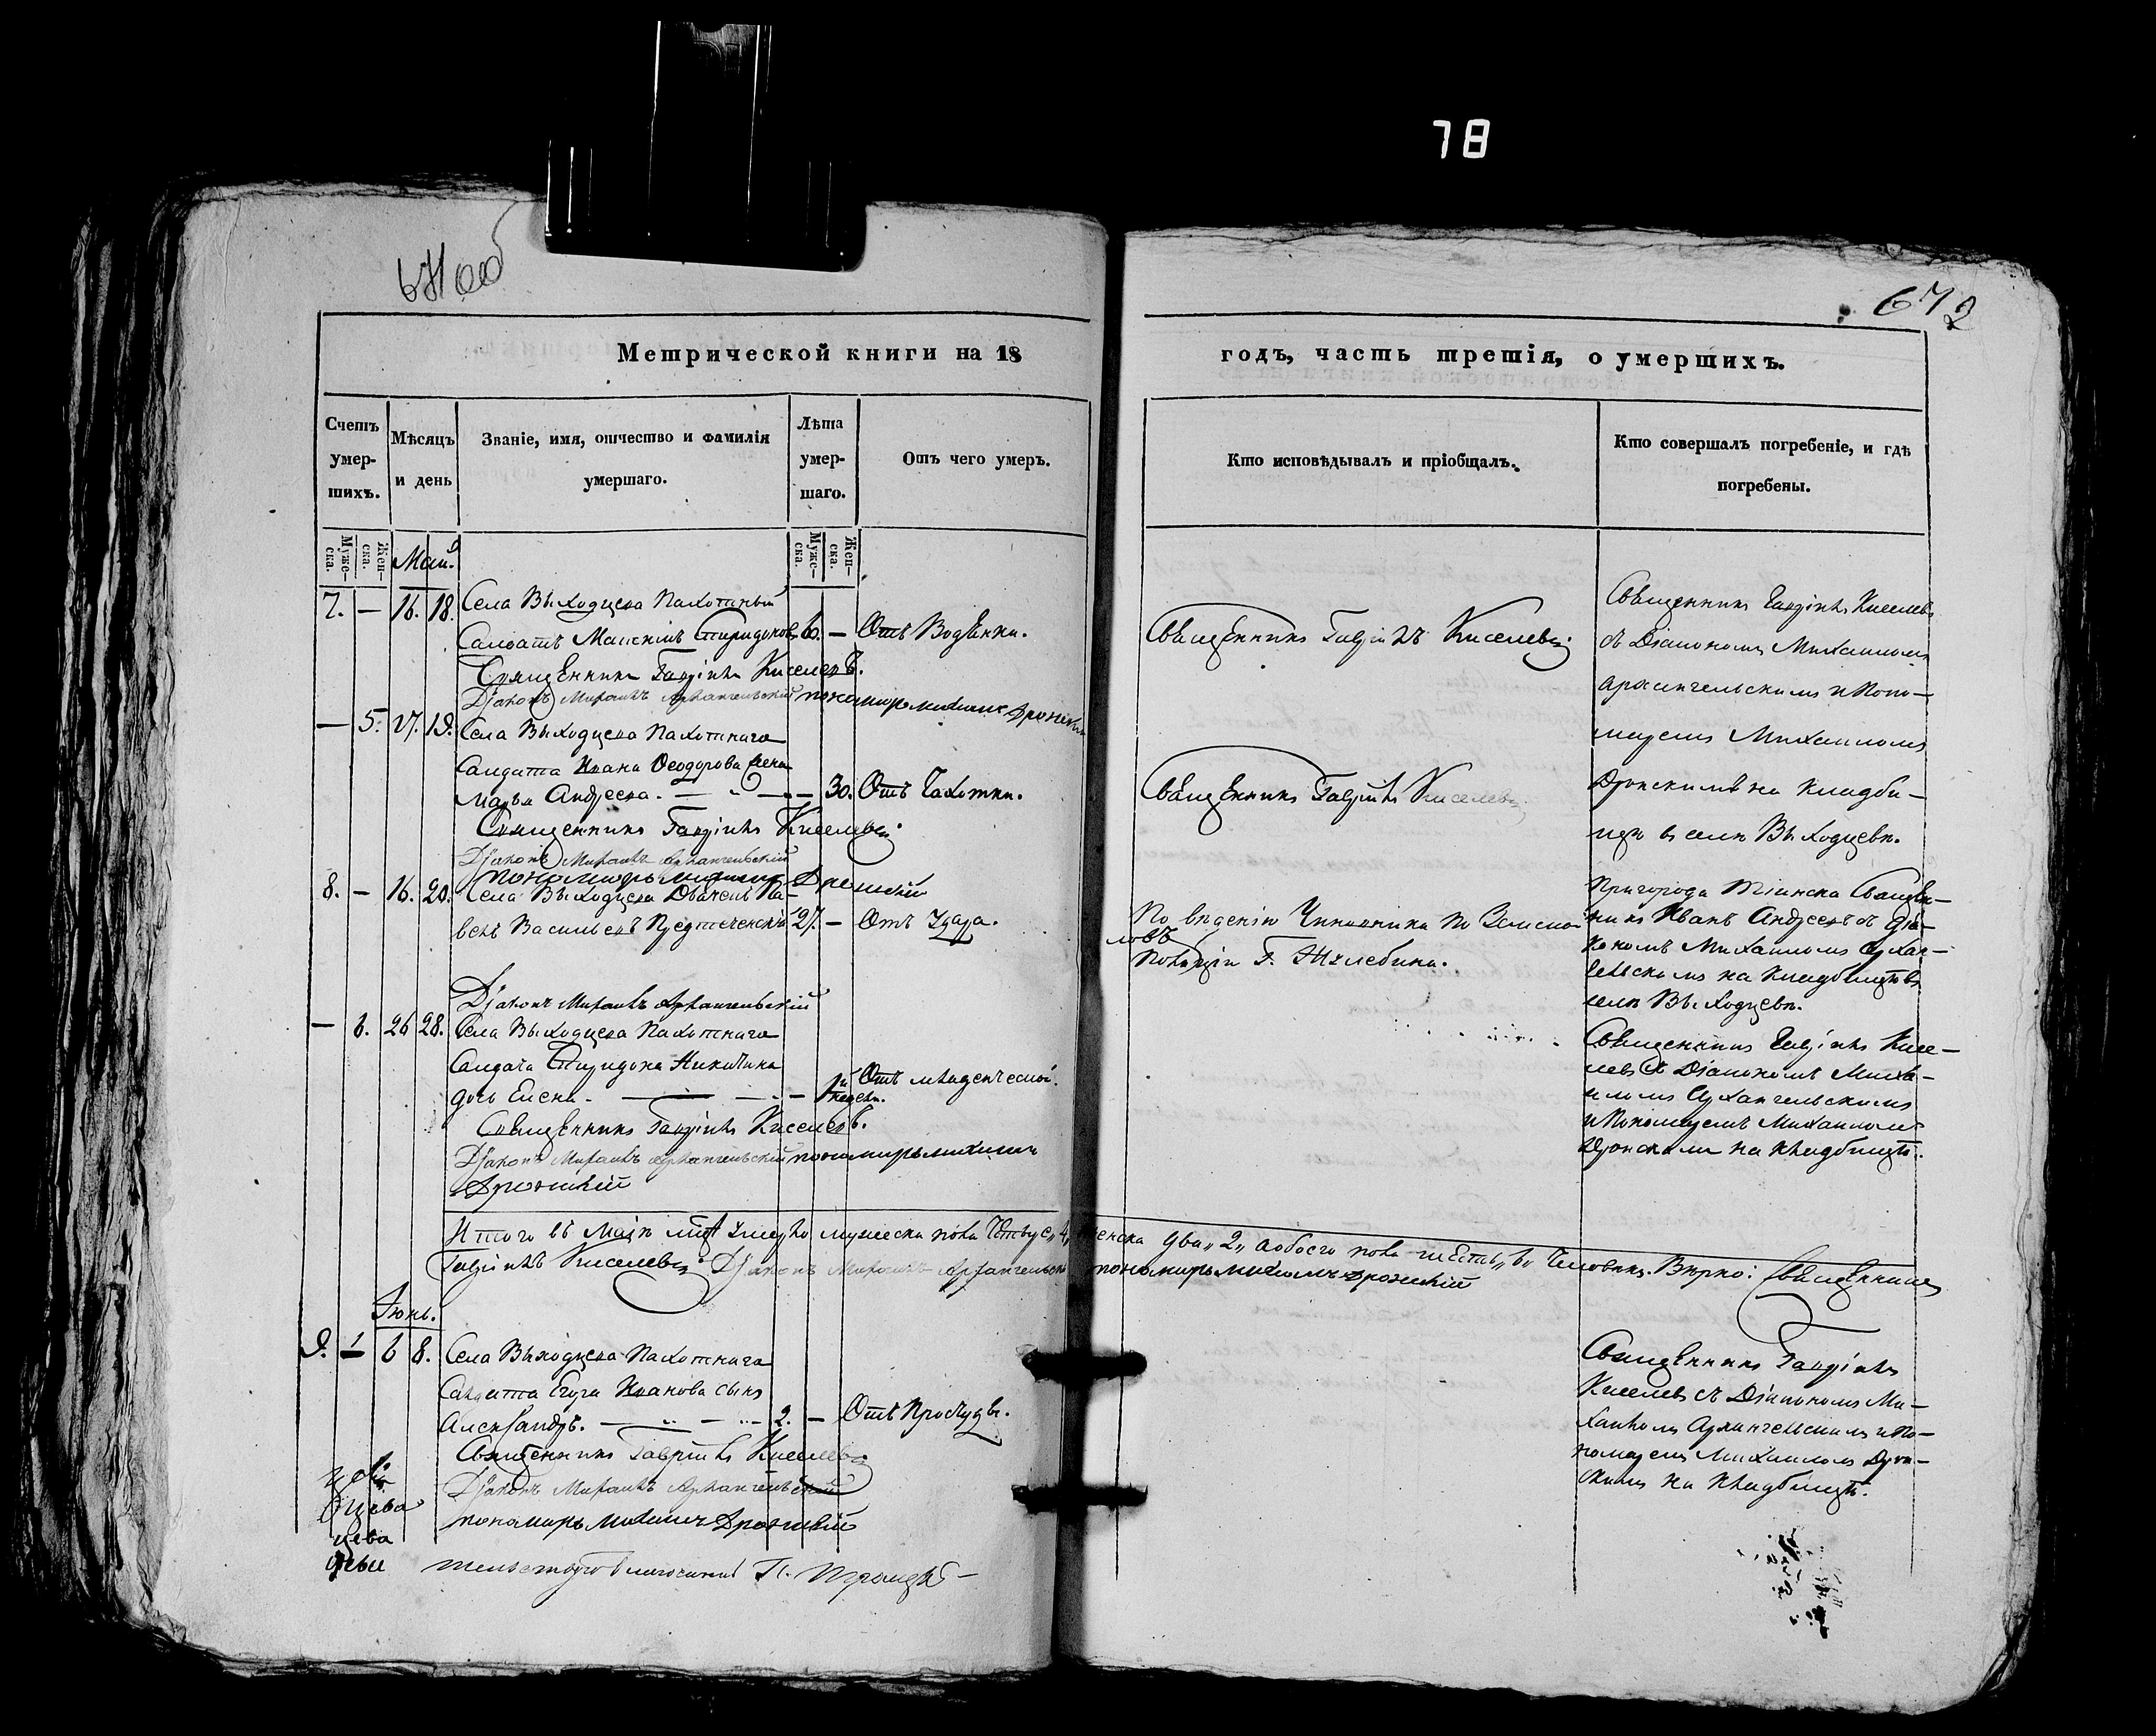 78
672
Метрической книги на 18
годъ, часть третія, о умершихъ.
Счетъ умер-шихъ.
Мѣсяцъ и день
Званіе, имя, отчество и фамилія умершаго.
Лѣта умер-шаго.
Отъ чего умеръ.
Кто исповѣдывалъ и пріобщалъ.
Кто совершалъ погребеніе, и гдѣ погребены.
Муже-ска.
Жен-ска.
Муже-ска.
Жен-ска.
Май.
7. — 16. 18. Села Выходцева Пахотный
Салдатъ Максимъ Спиридоновъ 60. — Отъ Водянки.
Священникъ Гавріилъ Киселевъ.
Діаконъ Михаилъ Архангельскій пономарь михаилъ Дронскій
Священникъ Гавріилъ Киселевъ
Священникъ Гавріилъ Киселевъ
съ Діакономъ Михаиломъ
Архангельскимъ и Поно-
маремъ Михаиломъ
Дронскимъ на кладби-
щѣ в селѣ Выходцевѣ.
— 5. 17. 19. Села Выходцева Пахотнаго
Салдата Ивана Ѳеодорова жена
Марья Андреева. — 30. Отъ Чахотки.
Священникъ Гавріилъ Киселевъ
Діаконъ Михаилъ Архангельскій
пономарь михаилъ Дронскій
Священникъ Гавріилъ Киселевъ
8. — 16. 20. Села Выходцева Діаконъ Па-
велъ Васильевъ Предтеченскій 27. — Отъ Удара.
Діаконъ Михаилъ Архангельскій
По веденію Чиновника по
Полиціи Г. Жилебина.
Пригорода Тіинска Священ-
никъ Иванъ Андреевъ съ Діа-
кономъ Михаиломъ Архан-
гельскимъ на кладбищѣ въ
селѣ Выходцевѣ.
— 6. 26 28. Села Выходцева Пахотнаго
Салдата Спиридона Никитина
дочь Елена — 1й недели. Отъ младенческой.
Священникъ Гавріилъ Киселевъ.
Діаконъ Михаилъ Архангельскій пономарь михаилъ
Дронскій
Священникъ Гавріилъ Кисе-
левъ съ Діакономъ Миха-
иломъ Архангельскимъ
и Пономаремъ Михаиломъ
Дронскимъ на кладбищѣ.
Итого въ Маіѣ умерло мужеска пола Четыре, 4, женска два „2„ а обоего пола шесть„ 6„ Человекъ. Вѣрно: Священникъ
Гавріилъ Киселевъ Діаконъ Михаилъ Архангельскій пономарь михаилъ дронскій
Іюнь.
9. — 6 8. Села Выходцева Пахотнаго
Салдата Егора Иванова сынъ
Александръ. — 2. — Отъ Простуды.
Священникъ Гавріилъ Киселевъ
Діаконъ Михаилъ Архангельскій
пономарь михаилъ Дронскій
Священникъ Гавріилъ
Киселевъ съ Діакономъ Ми-
хаиломъ Архангельскимъ и По-
номаремъ Михаиломъ Дрон-
скимъ на кладбищѣ.